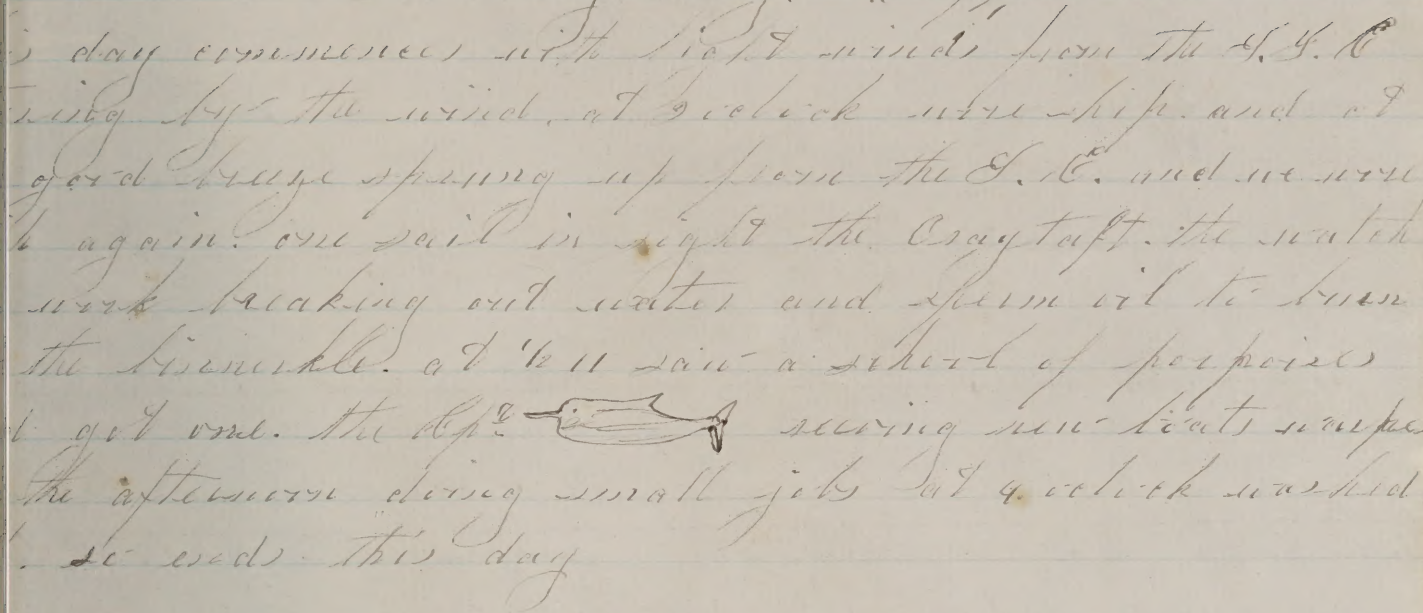 s day commences with light winds from the S. S. E
ing by the wind. at 3 oclock wore ship. and at
good breeze sprung up from the S. E. and we wore
again. one sail in sight the Cragtaft. the watch
work breaking out water and sperm oil to burn
the binnickle. at ½ 11 saw a school of porpoises
got one. the Cpr sewing new boats warpe
the afternoon doing small jobs at 4 oclock washed
so ends this day